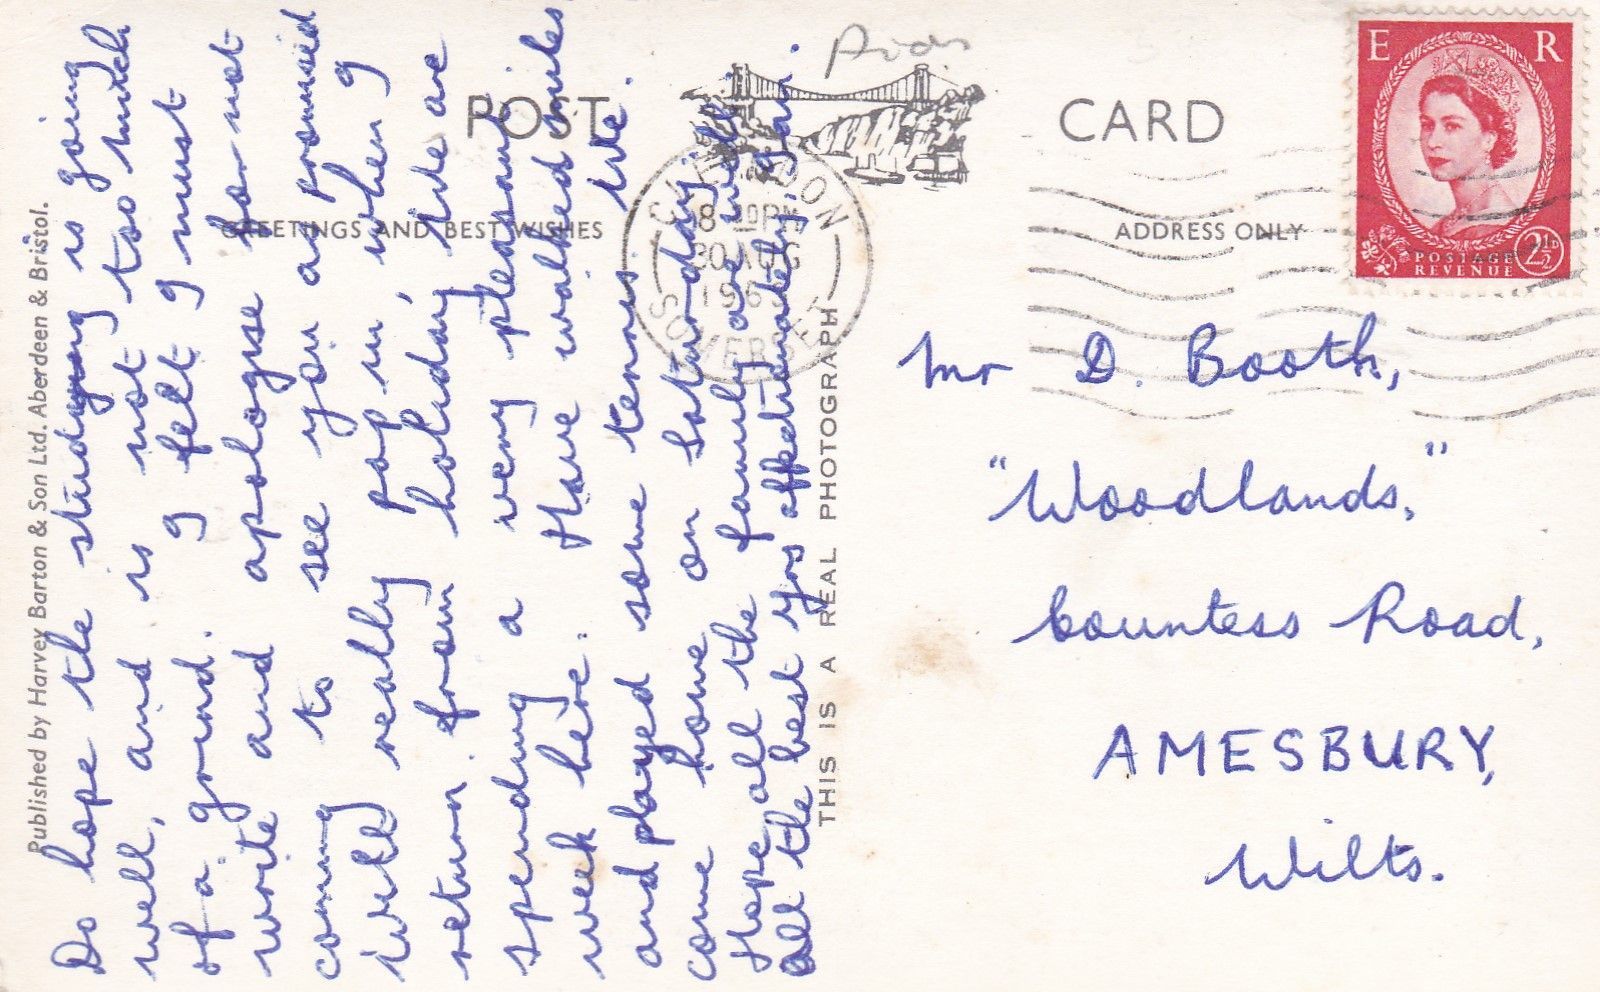 Published by Harvey Barton & Son Ltd. Aberdeen & Bristol.
POST CARD
GREETINGS AND BEST WISHES
ADDRESS ONLY
THIS IS A REAL PHOTOGRAPH
Do hope the studying is going
well, and is not too much
of a grind. I felt I must
write and apologise for not
coming to see you as promised
will really pop in, when I
return from holiday, we are
spending a very pleasant
week here. Have walked miles
and played some tennis. We
come home on Saturday.
Hope all the family are well.
All the best yrs affectionately,
E R
POSTAGE
REVENUE
2½D
PM
30 AUG
196
SOMERSET
Mr D. Booth,
"Woodlands,"
Countess Road,
AMESBURY,
Wilts.